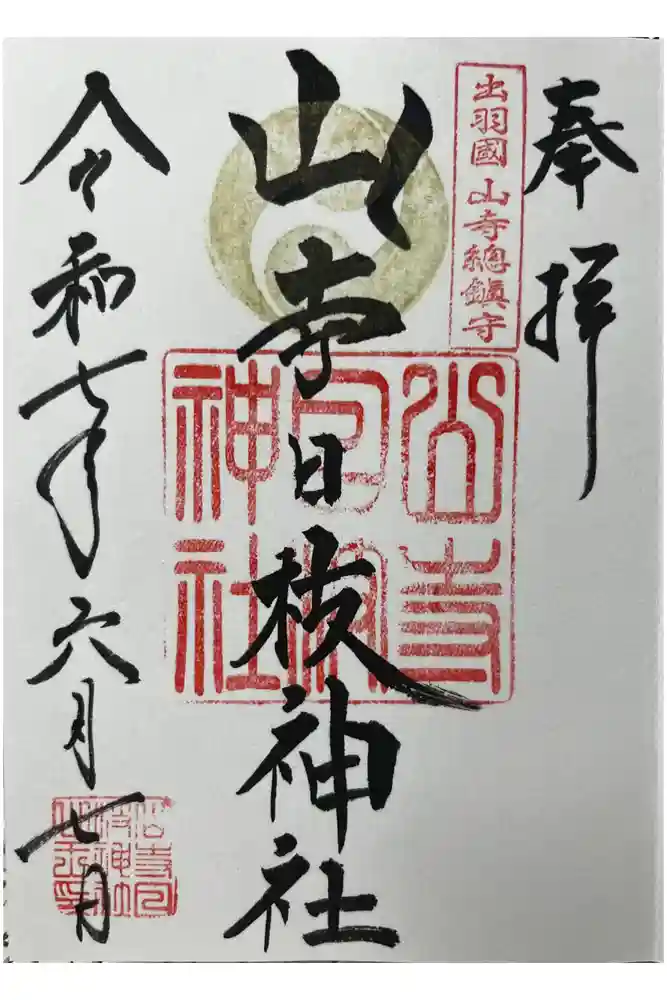 奉拝
出羽國 山寺總鎮守
山寺日枝神社
山寺日枝神社
令和七年六月七日